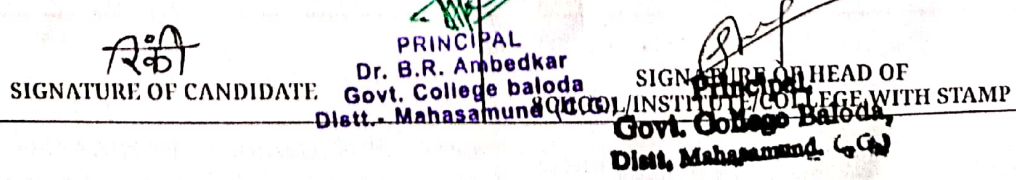 रिंकी
SIGNATURE OF CANDIDATE
PRINCIPAL
Dr. B.R. Ambedkar
Govt. College baloda
Distt.- Mahasamund (C.G.)
SIGNATURE OF HEAD OF
SCHOOL/INSTITUTE/COLLEGE WITH STAMP
Principal
Govt. College Baloda,
Distt, Mahasamund, (C.G.)